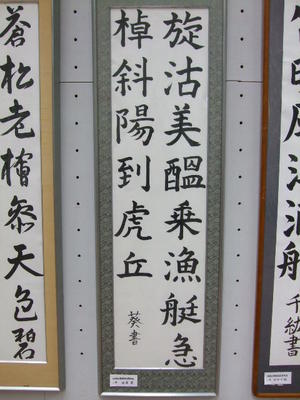 千紘書
旋沽美醞乗漁艇急
棹斜陽到虎丘
葵書
蒼松老檜参天色碧